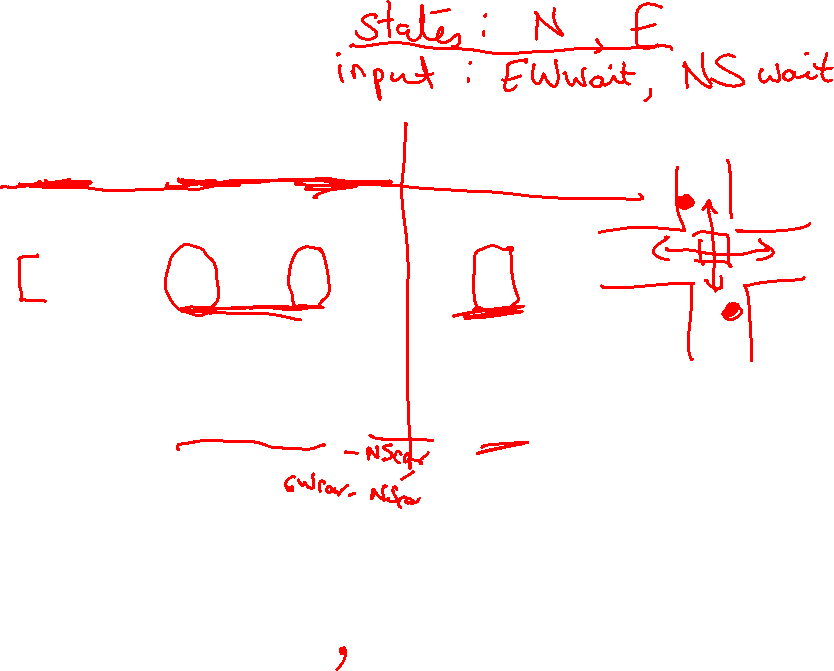 states : N E
input : EWwait, NS wait
- NScar
EWcar - NScar
,